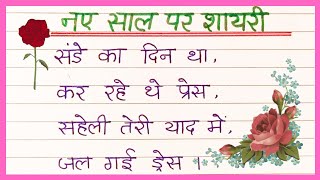 नए साल पर शायरी
संडे का दिन था,
कर रहे थे प्रेस,
सहेली तेरी याद में,
जल गई ड्रेस।